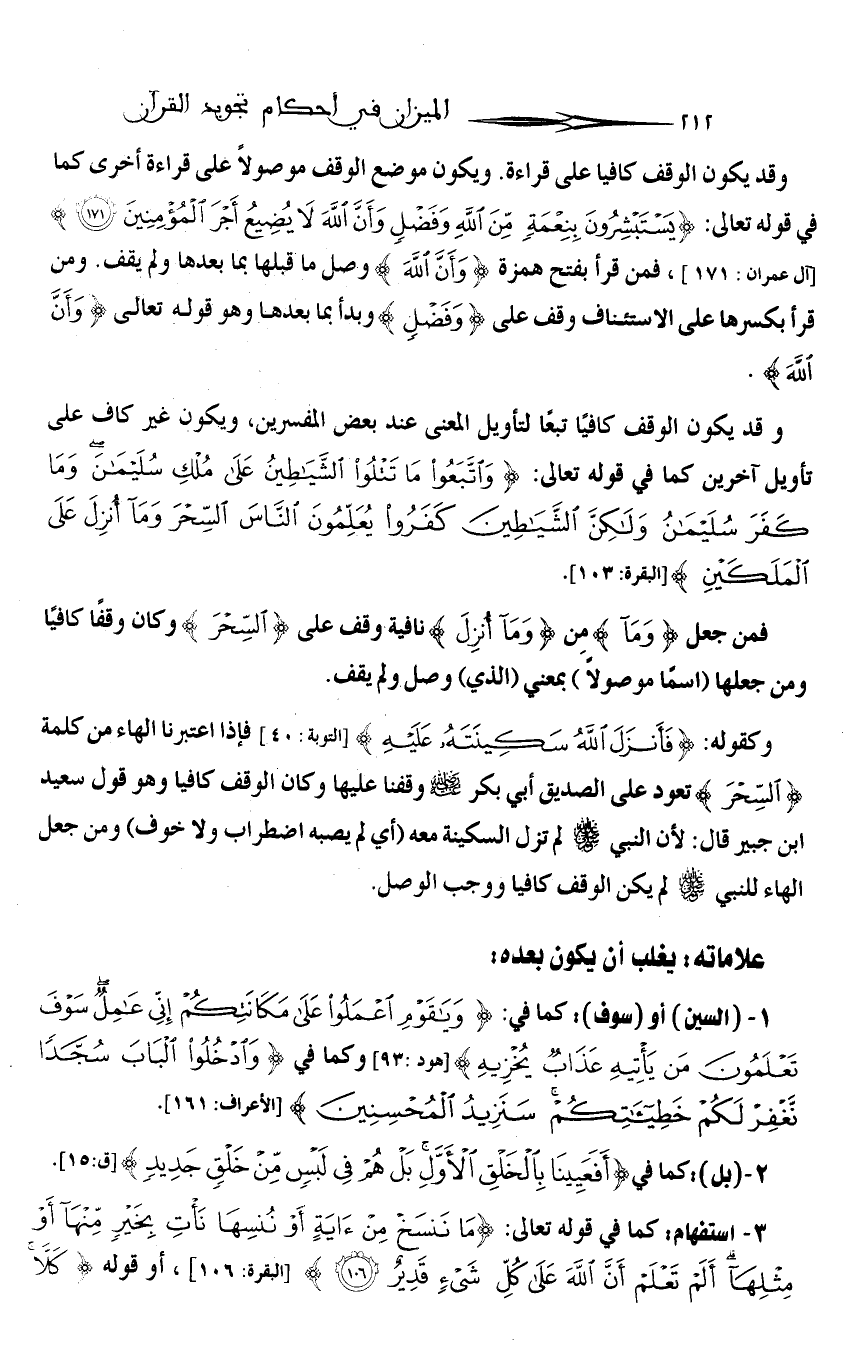 ٢١٢ الميزان في أحكام تجويد القرآن
وقد يكون الوقف كافيا على قراءة. ويكون موضع الوقف موصولاً على قراءة أخرى كما
في قوله تعالى: ﴿ يَسْتَبْشِرُونَ بِنِعْمَةٍ مِّنَ ٱللَّهِ وَفَضْلٍ وَأَنَّ ٱللَّهَ لَا يُضِيعُ أَجْرَ ٱلْمُؤْمِنِينَ ١٧١ ﴾
[آل عمران : ١٧١] ، فمن قرأ بفتح همزة ﴿ وَأَنَّ ٱللَّهَ ﴾ وصل ما قبلها بما بعدها ولم يقف. ومن
قرأ بكسرها على الاستئناف وقف على ﴿ وَفَضْلٍ ﴾ وبدأ بما بعدها وهو قوله تعالى ﴿ وَأَنَّ
ٱللَّهَ ﴾ .
و قد يكون الوقف كافيًا تبعًا لتأويل المعنى عند بعض المفسرين، ويكون غير كاف على
تأويل آخرين كما في قوله تعالى: ﴿ وَٱتَّبَعُوا۟ مَا تَتْلُوا۟ ٱلشَّيَـٰطِينُ عَلَىٰ مُلْكِ سُلَيْمَـٰنَ ۖ وَمَا
كَفَرَ سُلَيْمَـٰنُ وَلَـٰكِنَّ ٱلشَّيَـٰطِينَ كَفَرُوا۟ يُعَلِّمُونَ ٱلنَّاسَ ٱلسِّحْرَ وَمَآ أُنزِلَ عَلَى
ٱلْمَلَكَيْنِ ﴾ [البقرة: ١٠٣].
فمن جعل ﴿ وَمَآ ﴾ من ﴿ وَمَآ أُنزِلَ ﴾ نافية وقف على ﴿ ٱلسِّحْرَ ﴾ وكان وقفًا كافيًا
ومن جعلها (اسمًا موصولاً ) بمعني (الذي) وصل ولم يقف.
وكقوله: ﴿ فَأَنزَلَ ٱللَّهُ سَكِينَتَهُۥ عَلَيْهِ ﴾ [التوبة : ٤٠ ] فإذا اعتبرنا الهاء من كلمة
﴿ ٱلسِّحْرَ ﴾ تعود على الصديق أبي بكر وقفنا عليها وكان الوقف كافيا وهو قول سعيد
ابن جبير قال: لأن النبي ﷺ لم تزل السكينة معه (أي لم يصبه اضطراب ولا خوف) ومن جعل
الهاء للنبي ﷺ لم يكن الوقف كافيا ووجب الوصل.
علاماته: يغلب أن يكون بعده:
١- (السين) أو (سوف): كما في: ﴿ وَيَـٰقَوْمِ ٱعْمَلُوا۟ عَلَىٰ مَكَانَتِكُمْ إِنِّى عَـٰمِلٌ ۖ سَوْفَ
تَعْلَمُونَ مَن يَأْتِيهِ عَذَابٌ يُخْزِيهِ ﴾ [هود :٩٣] وكما في ﴿ وَٱدْخُلُوا۟ ٱلْبَابَ سُجَّدًا
نَّغْفِرْ لَكُمْ خَطِيٓـَٔـٰتِكُمْ ۚ سَنَزِيدُ ٱلْمُحْسِنِينَ ﴾ [الأعراف: ١٦١].
٢-(بل):كما في ﴿ أَفَعَيِينَا بِٱلْخَلْقِ ٱلْأَوَّلِ ۚ بَلْ هُمْ فِى لَبْسٍ مِّنْ خَلْقٍ جَدِيدٍ ﴾ [ق:١٥].
٣- استفهام: كما في قوله تعالى: ﴿ مَا نَنسَخْ مِنْ ءَايَةٍ أَوْ نُنسِهَا نَأْتِ بِخَيْرٍ مِّنْهَآ أَوْ
مِثْلِهَآ ۗ أَلَمْ تَعْلَمْ أَنَّ ٱللَّهَ عَلَىٰ كُلِّ شَىْءٍ قَدِيرٌ ١٠٦ ﴾ [البقرة: ١٠٦] ، أو قوله ﴿ كَلَّا ۚ